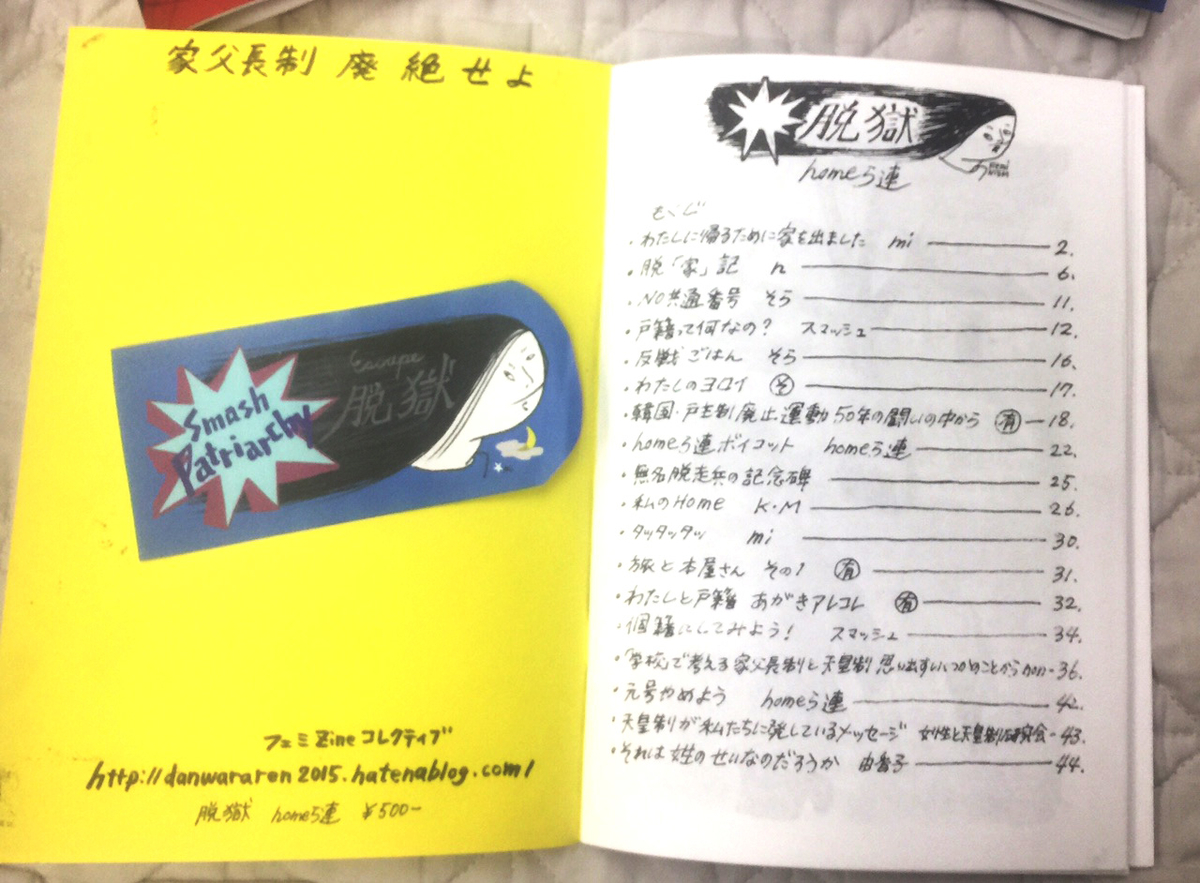 家父長制 廃絶せよ
Escape
脱獄
Smash
Patriarchy
フェミZineコレクティブ
http://danwararen2015.hatenablog.com/
脱獄 homeら連 ¥500-
脱獄
homeら連
もくじ
・わたしに帰るために家を出ました mi 2.
・脱「家」記 n 6.
・NO共通番号 そら 11.
・戸籍って何なの? スマッシュ 12.
・反戦ごはん そら 16.
・わたしのヨロイ そ 17.
・韓国・戸主制廃止運動50年の闘いの中から 有 18.
・homeら連ボイコット homeら連 22.
・無名脱走兵の記念碑 25.
・私のHome K・M 26.
・タッタッタッ mi 30.
・旅と本屋さん その1 有 31.
・わたしと戸籍 あがきアレコレ 有 32.
・個籍にしてみよう! スマッシュ 34.
・「学校」で考える家父長制と天皇制 思い出すいくつかのことから non 36.
・元号やめよう homeら連 42.
・天皇制が私たちに発しているメッセージ 女性と天皇制研究会 43.
・それは姓のせいなのだろうか 由香子 44.